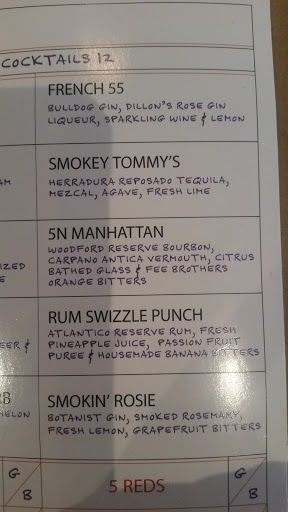 COCKTAILS 12
FRENCH 55
BULLDOG GIN, DILLON'S ROSE GIN
LIQUEUR, SPARKLING WINE & LEMON
SMOKEY TOMMY'S
HERRADURA REPOSADO TEQUILA,
MEZCAL, AGAVE, FRESH LIME
5N MANHATTAN
WOODFORD RESERVE BOURBON,
CARPANO ANTICA VERMOUTH, CITRUS
BATHED GLASS & FEE BROTHERS
ORANGE BITTERS
RUM SWIZZLE PUNCH
ATLANTICO RESERVE RUM, FRESH
PINEAPPLE JUICE, PASSION FRUIT
PUREE & HOUSEMADE BANANA BITTERS
SMOKIN' ROSIE
BOTANIST GIN, SMOKED ROSEMARY,
FRESH LEMON, GRAPEFRUIT BITTERS
G
B
5 REDS
G
B